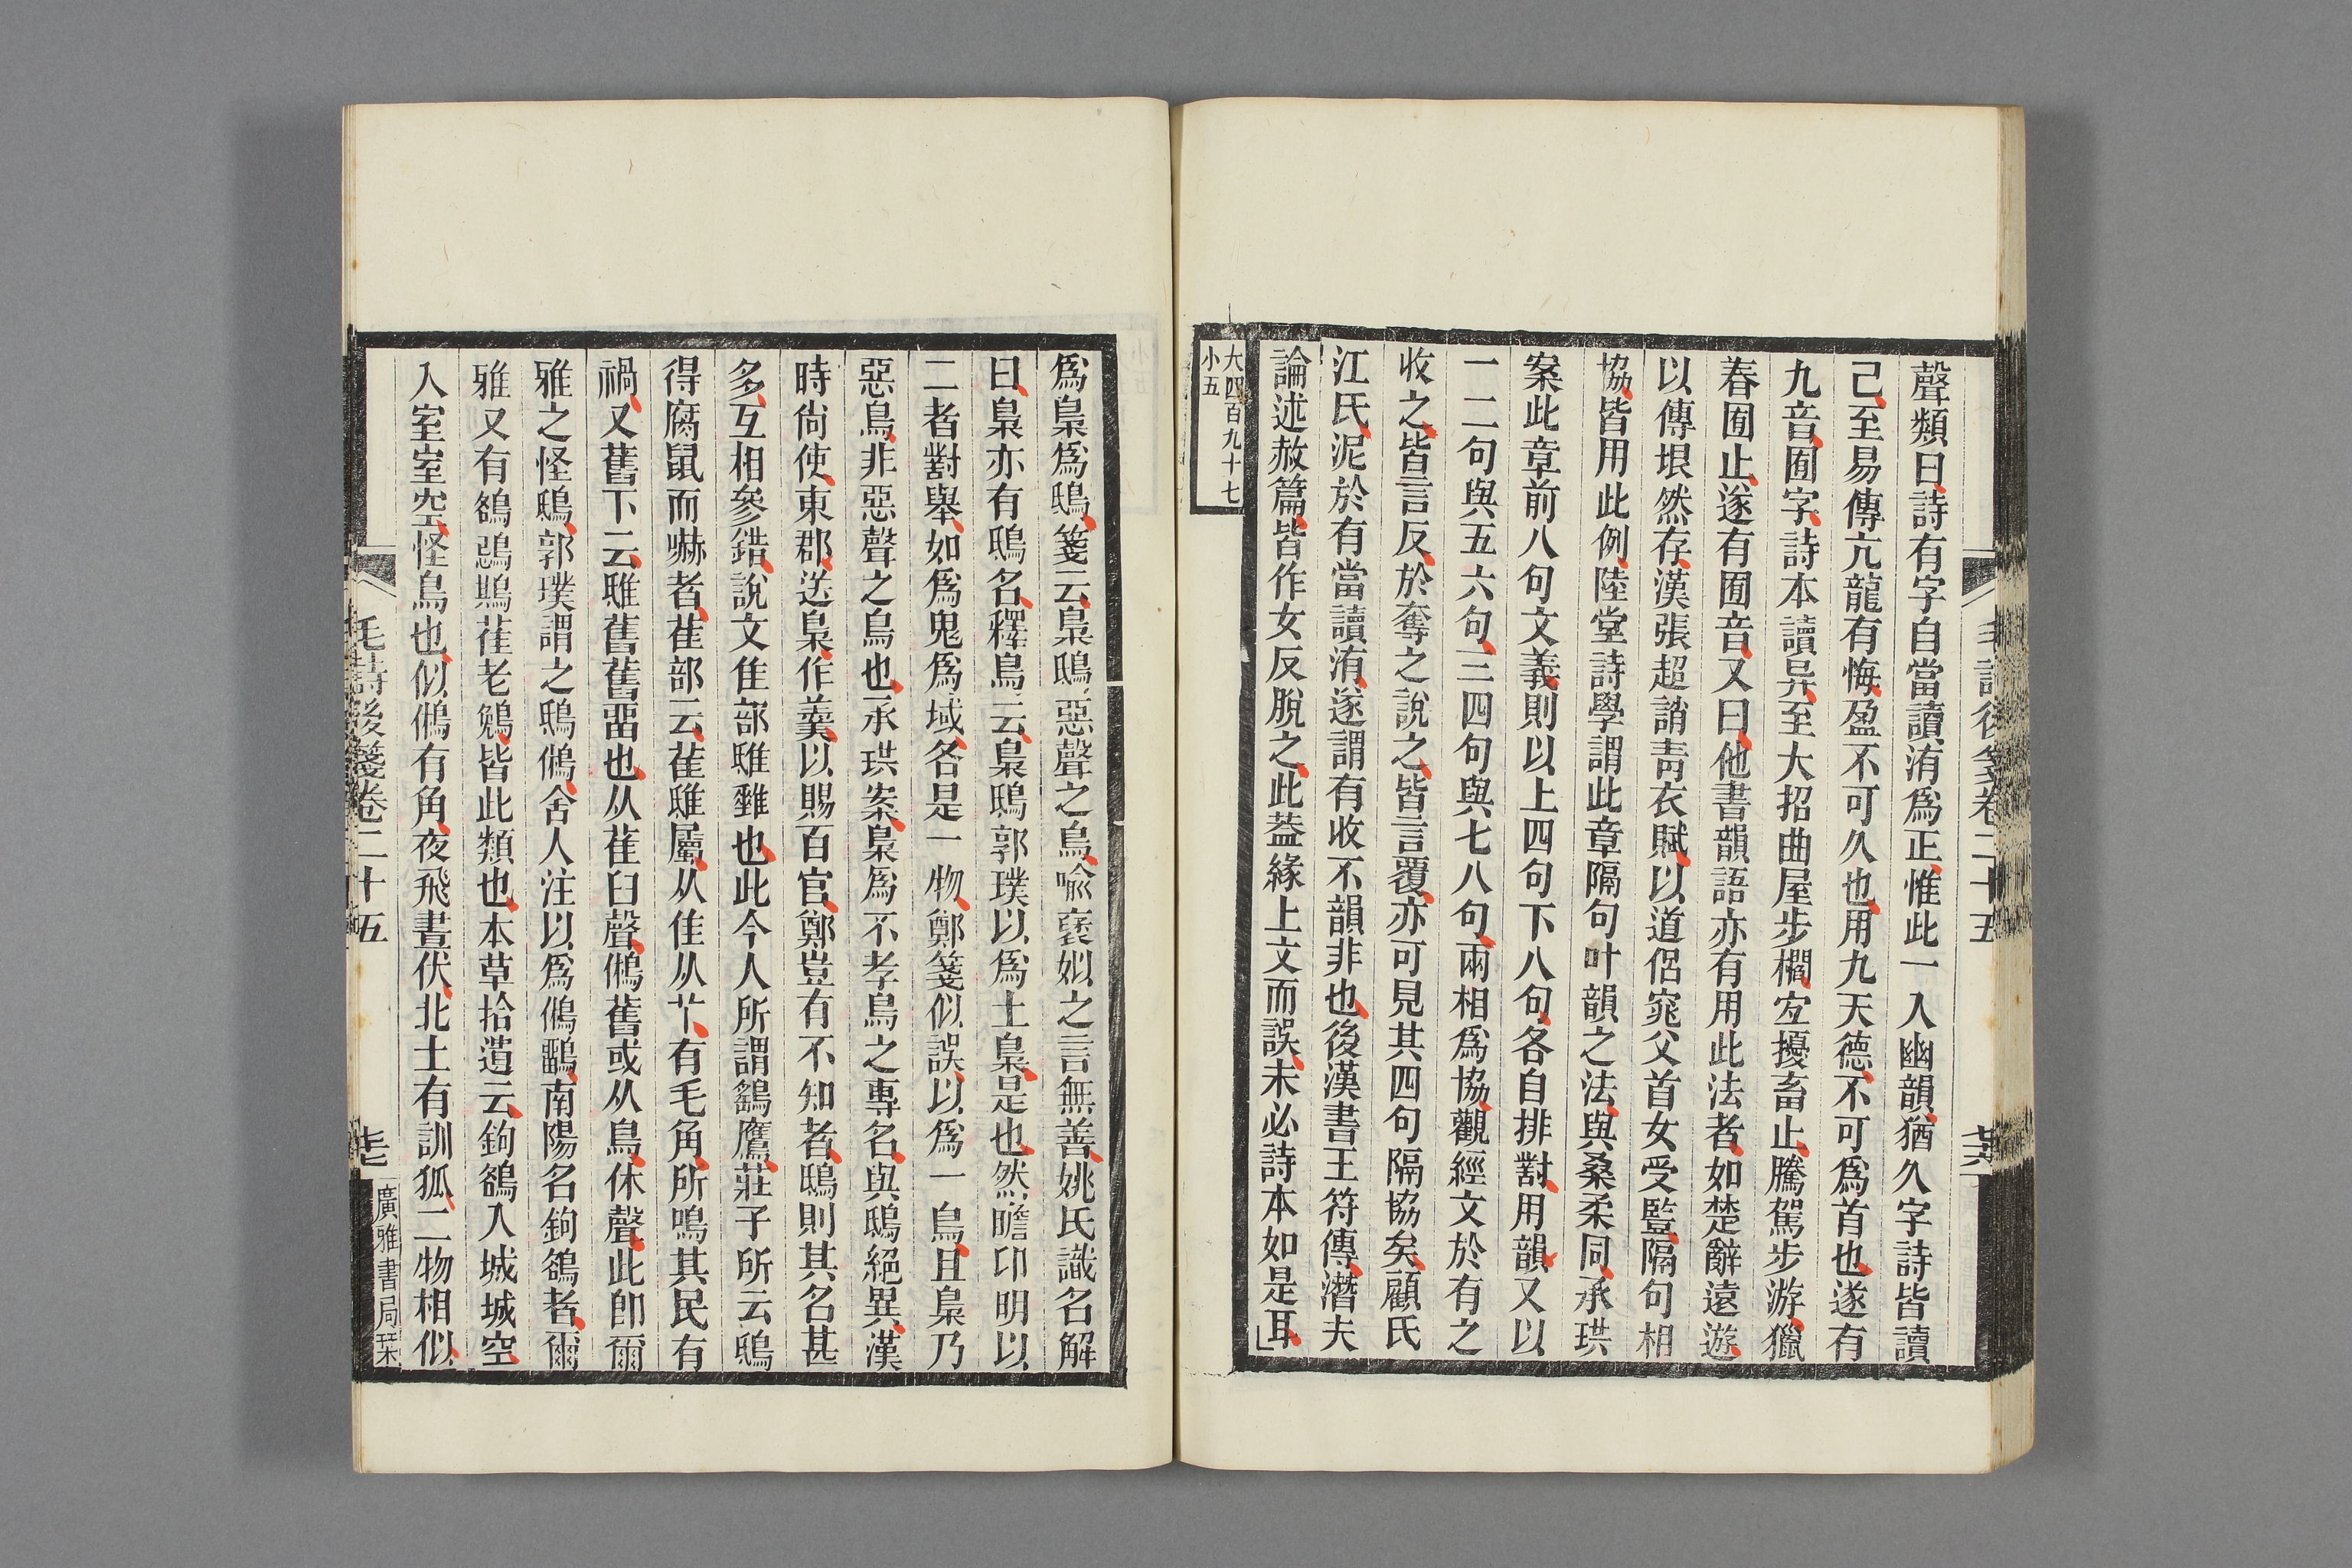 毛詩後箋卷二十五
聲類曰詩有字自當讀洧爲正惟此一入幽韻猶久字詩皆讀
己至易傳亢龍有悔盈不可久也用九天德不可爲首也遂有
九音囿字詩本讀异至大招曲屋步櫩宜擾畜止騰駕步游獵
春囿止遂有囿音又曰他書韻語亦有用此法者如楚辭遠遊
以傳垠然存漢張超誚靑衣賦以道侶寃父首女受監隔句相
協皆用此例陸堂詩學謂此章隔句叶韻之法與桑柔同承珙
案此章前八句文義則以上四句下八句各自排對用韻又以
一二句與五六句三四句與七八句兩相爲協觀經文於有之
收之皆言反於奪之說之皆言覆亦可見其四句隔協矣顧氏
江氏泥於有當讀洧遂謂有收不韻非也後漢書王符傳潛夫
論述赦篇皆作女反脫之此葢緣上文而誤未必詩本如是耳
大四百九十七
小五
爲梟爲鴟箋云梟鴟惡聲之鳥喩褒姒之言無善姚氏識名解
曰梟亦有鴟名釋鳥云梟鴟郭璞以爲土梟是也然瞻卬明以
二者對舉如爲鬼爲域各是一物鄭箋似誤以爲一鳥且梟乃
惡鳥非惡聲之鳥也承珙案梟爲不孝鳥之專名與鴟絕異漢
時尙使東郡送梟作羹以賜百官鄭豈有不知者鴟則其名甚
多互相參錯說文隹部雖雞也此今人所謂鷂鷹莊子所云鴟
得腐鼠而嚇者萑部云萑雖屬从隹从𦫳有毛角所鳴其民有
禍又舊下云雖舊舊畱也从萑臼聲鵂舊或从鳥休聲此卽爾
雅之怪鴟郭璞謂之鴟鵂舍人注以爲鵂鶹南陽名鉤鵅者爾
雅又有鵅鵋䳢萑老鵵皆此類也本草拾遺云鉤鵅入城城空
入室室空怪鳥也似鵂有角夜飛晝伏北土有訓狐二物相似
毛詩後箋卷二十五
廣雅書局栞